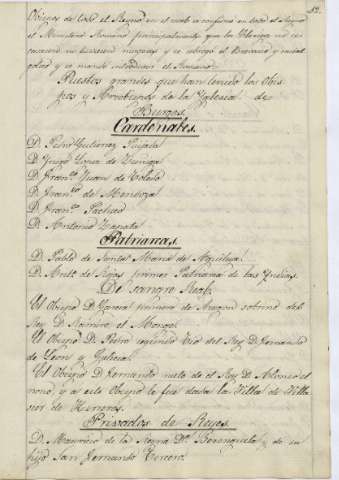 52.
Obispos de todo el Reyno en el cual se confirmo en todo el Reyno
el Misterio Romano principalmente que los Clerigos no
ningunas y se abrogó el Breviario y misal
gotico y se mandó introducir el Romano.
Puestos grandes que han tenido los Obis
pos y Arzobispos de la Yglesia de
Burgos.
Cardenales.
D. Pedro Gutierrez Quijada
D. Yñigo Lopez de Zuñiga
D. Fran.co Juan de Toledo
D. Fran.co de Mendoza
D. Fran.co Pacheco
D. Antonio Zapata
Patriarcas.
D. Pablo de Santa Maria de Aquileya
D. Ant.o de Rojas primer Patriarca de las Yndias.
De sangre Real.
El Obispo D. Garcia primero de Aragon sobrino del
Rey D. Ramiro el Monge.
El Obispo D. Pedro segundo Tio del Rey D. Fernando
de Leon y Galicia.
El Obispo D. Fernando nieto de el Rey D. Alonso el
nono, y a este Obispo le fue dada la Villa de Villa
sur de Herreros.
Privados de Reyes.
D. Mauricio de la Reyna D.a Berenguela y de su
hijo San Fernando Tercero.